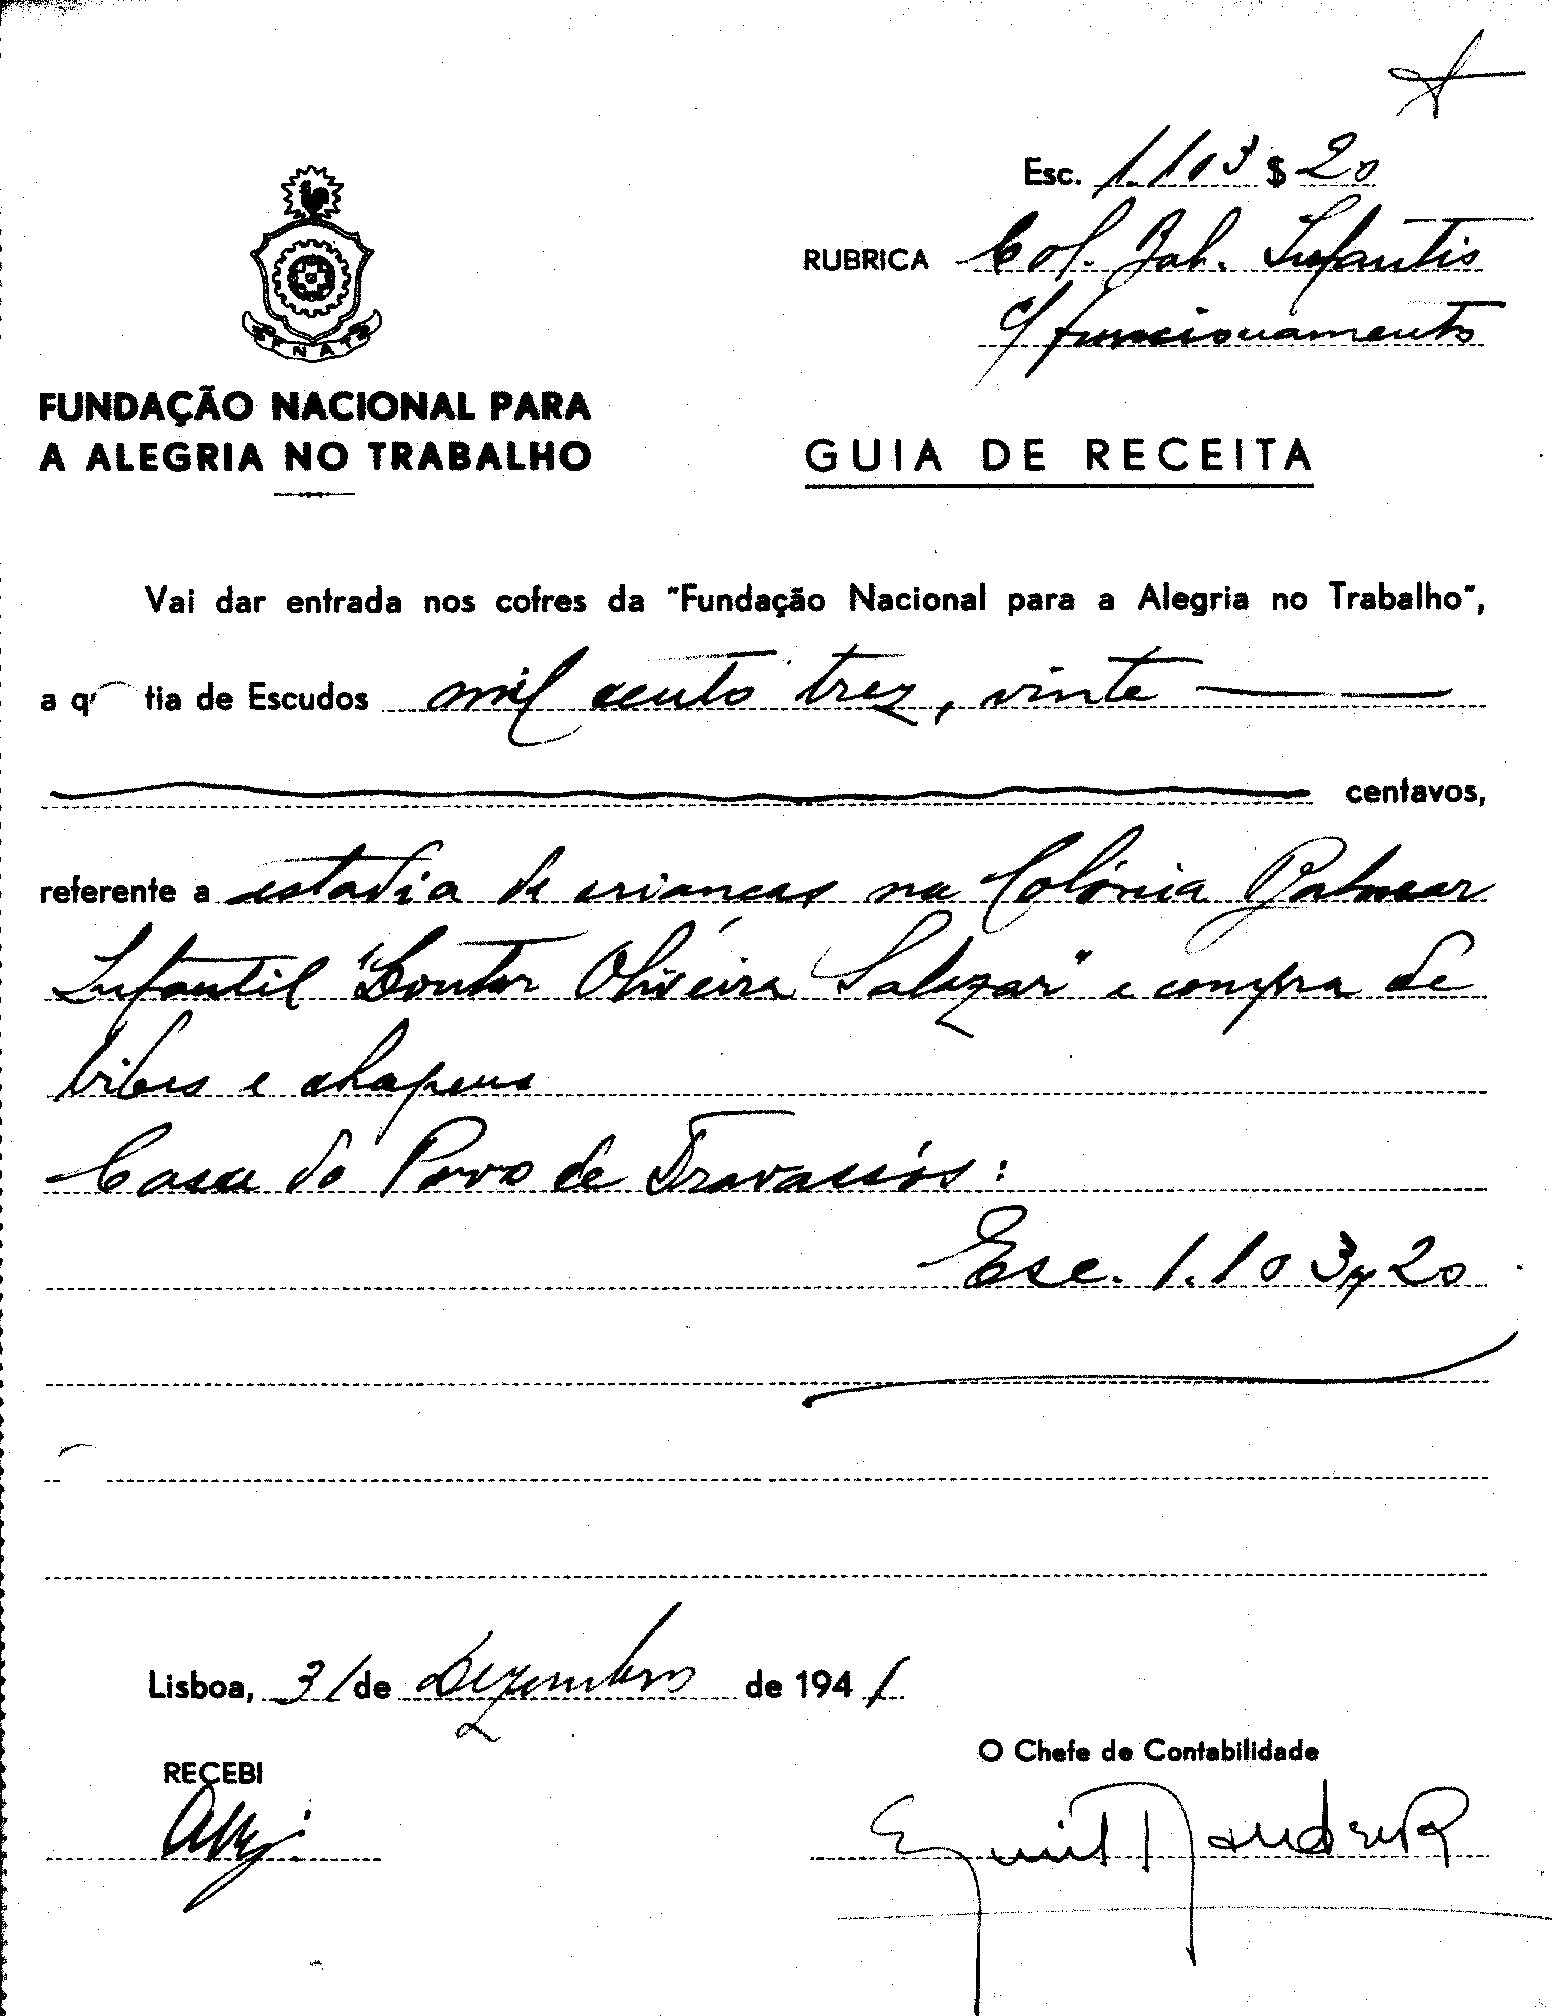 Esc. 1.103 $ 20
RUBRICA Col. Bal. Infantis
c/ funcionamento
FNAT
FUNDAÇÃO NACIONAL PARA
A ALEGRIA NO TRABALHO
GUIA DE RECEITA
Vai dar entrada nos cofres da "Fundação Nacional para a Alegria no Trabalho",
a q tia de Escudos mil cento trez, vinte
centavos,
referente a estadia de crianças na Colónia Balnear
Infantil "Doutor Oliveira Salazar" e compra de
bibes e chapeus
Casa do Povo de Travassós:
Esc. 1.103$20
Lisboa, 31 de Dezembro de 1941
RECEBI
O Chefe de Contabilidade